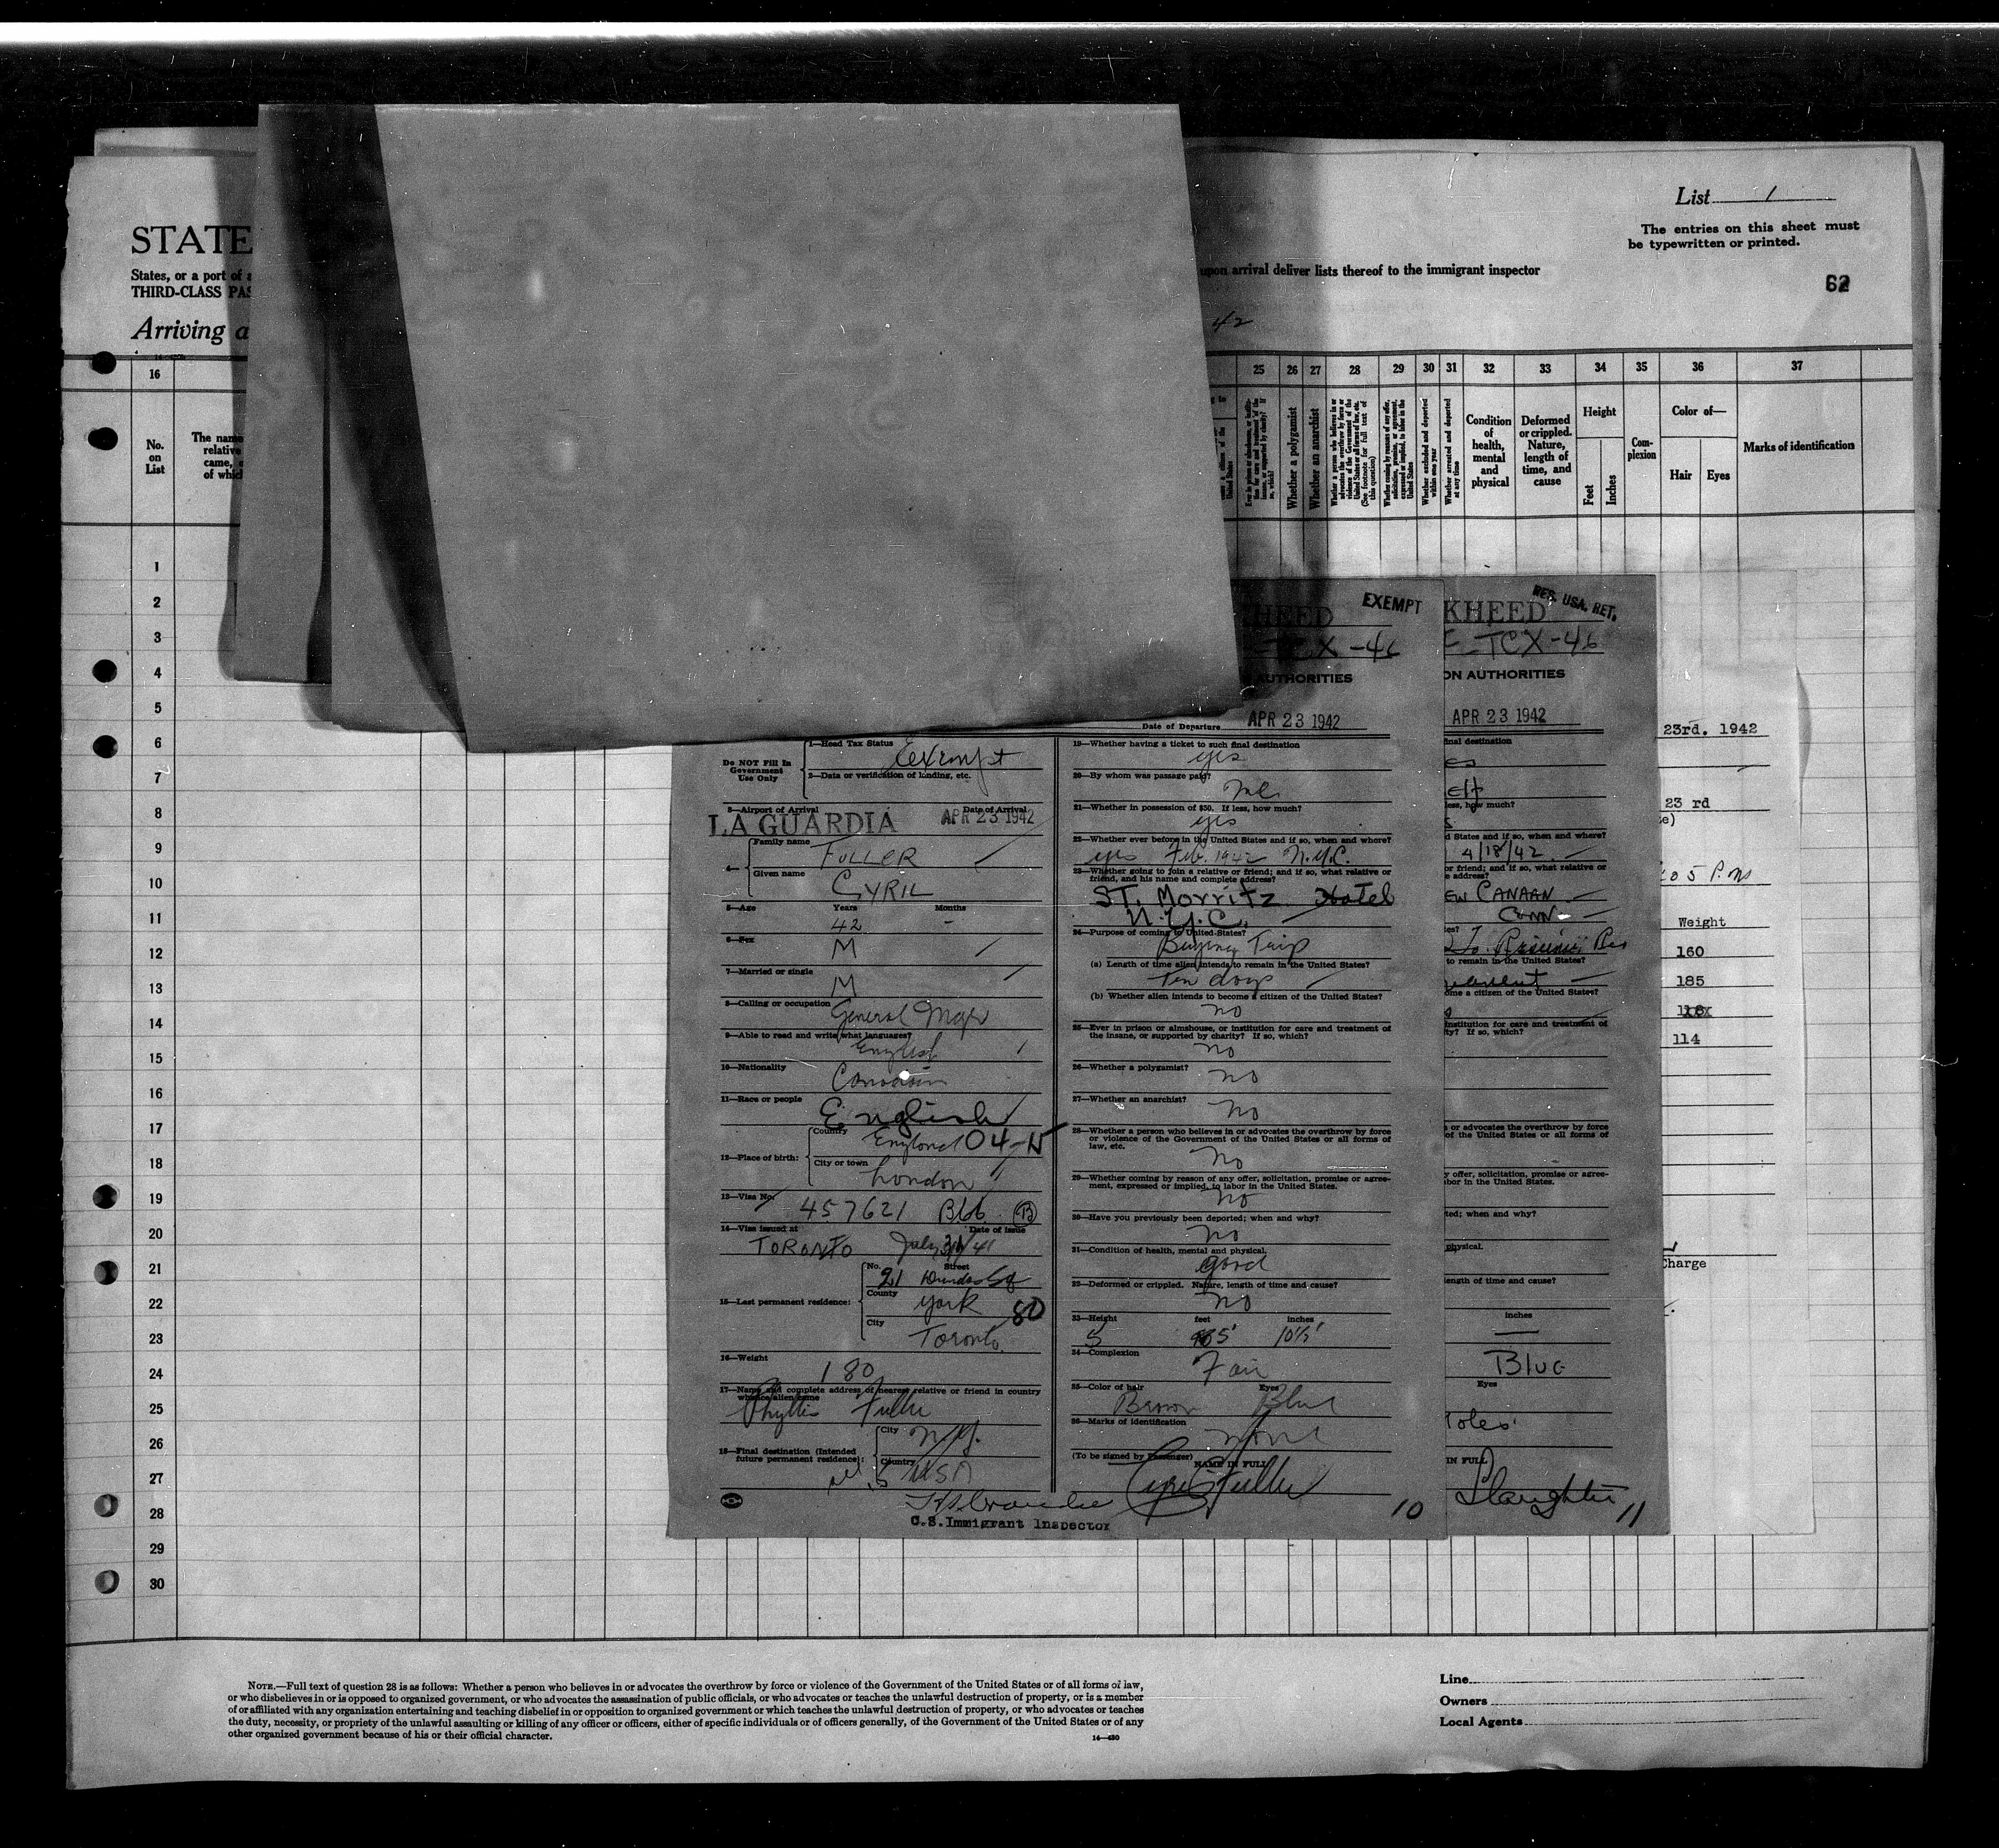 List 1
The entries on this sheet must
be typewritten or printed.
STATE
States, or a port of
THIRD-CLASS PAS
upon arrival deliver lists thereof to the immigrant inspector
62
Arriving a
42
16 25 26 27 28 29 30 31 32 33 34 35 36 37
No.
on
List
The name
relative
came,
of which
Whether a polygamist
Whether an anarchist
Condition
of
health,
mental
and
physical
Deformed
or crippled.
Nature,
length of
time, and
cause
Height
Feet
Inches
Com-
plexion
Color of—
Hair Eyes
Marks of identification
1
2
3
4
5
6
7
8
9
10
11
12
13
14
15
16
17
18
19
20
21
22
23
24
25
26
27
28
29
30
HEED EXEMPT
TCX-46
AUTHORITIES
Date of Departure APR 23 1942
Do NOT Fill In
Government
Use Only
1—Head Tax Status Exempt
2—Data or verification of landing, etc.
3—Airport of Arrival Date of Arrival
LA GUARDIA APR 23 1942
4— Family name FULLER
Given name CYRIL
5—Age Years Months
42 –
6—Sex M
7—Married or single M
8—Calling or occupation General Mgr
9—Able to read and write what languages?
English
10—Nationality Canadian
11—Race or people English
12—Place of birth: Country England 04-N
City or town London
13—Visa No. 457621 Bbb B
14—Visa issued at Date of issue
TORONTO July 31/41
15—Last permanent residence: No. Street
21 Dundas Sq
County York 80
City Toronto
16—Weight 180
17—Name and complete address of nearest relative or friend in country
whence alien came
Phyllis Fuller
18—Final destination (Intended
future permanent residence):
City N.Y.
Country USA
U.S. Immigrant Inspector
19—Whether having a ticket to such final destination
yes
20—By whom was passage paid?
me
21—Whether in possession of $50. If less, how much?
yes
22—Whether ever before in the United States and if so, when and where?
yes Feb. 1942 N.Y.C.
23—Whether going to join a relative or friend; and if so, what relative or
friend, and his name and complete address?
ST. Morritz Hotel
N.Y.C.
24—Purpose of coming to United States?
Buying Trip
(a) Length of time alien intends to remain in the United States?
Ten days
(b) Whether alien intends to become a citizen of the United States?
no
25—Ever in prison or almshouse, or institution for care and treatment of
the insane, or supported by charity? If so, which?
no
26—Whether a polygamist?
no
27—Whether an anarchist?
no
28—Whether a person who believes in or advocates the overthrow by force
or violence of the Government of the United States or all forms of
law, etc.
no
29—Whether coming by reason of any offer, solicitation, promise or agree-
ment, expressed or implied, to labor in the United States.
no
30—Have you previously been deported; when and why?
no
31—Condition of health, mental and physical.
good
32—Deformed or crippled. Nature, length of time and cause?
no
33—Height feet inches
5 5' 10½'
34—Complexion
Fair
35—Color of hair Eyes
Brown Blue
36—Marks of identification
none
(To be signed by Passenger) NAME IN FULL
Cyril Fuller
10
KHEED RES. USA. RET.
TCX-46
ON AUTHORITIES
APR 23 1942
inal destination
es
elf
less, how much?
s
d States and if so, when and where?
4/18/42
or friend; and if so, what relative or
e address?
EW CANAAN
CONN
tes?
to remain in the United States?
ome a citizen of the United States?
institution for care and treatment of
ty? If so, which?
s or advocates the overthrow by force
of the United States or all forms of
y offer, solicitation, promise or agree-
abor in the United States.
ted; when and why?
physical.
length of time and cause?
inches
Blue
Eyes
Moles
IN FULL
Slaughter
11
23rd. 1942
23 rd
05 P.M
Weight
160
185
114
Charge
NOTE.—Full text of question 28 is as follows: Whether a person who believes in or advocates the overthrow by force or violence of the Government of the United States or of all forms of law,
or who disbelieves in or is opposed to organized government, or who advocates the assassination of public officials, or who advocates or teaches the unlawful destruction of property, or is a member
of or affiliated with any organization entertaining and teaching disbelief in or opposition to organized government or which teaches the unlawful destruction of property, or who advocates or teaches
the duty, necessity, or propriety of the unlawful assaulting or killing of any officer or officers, either of specific individuals or of officers generally, of the Government of the United States or of any
other organized government because of his or their official character.
14—430
Line
Owners
Local Agents